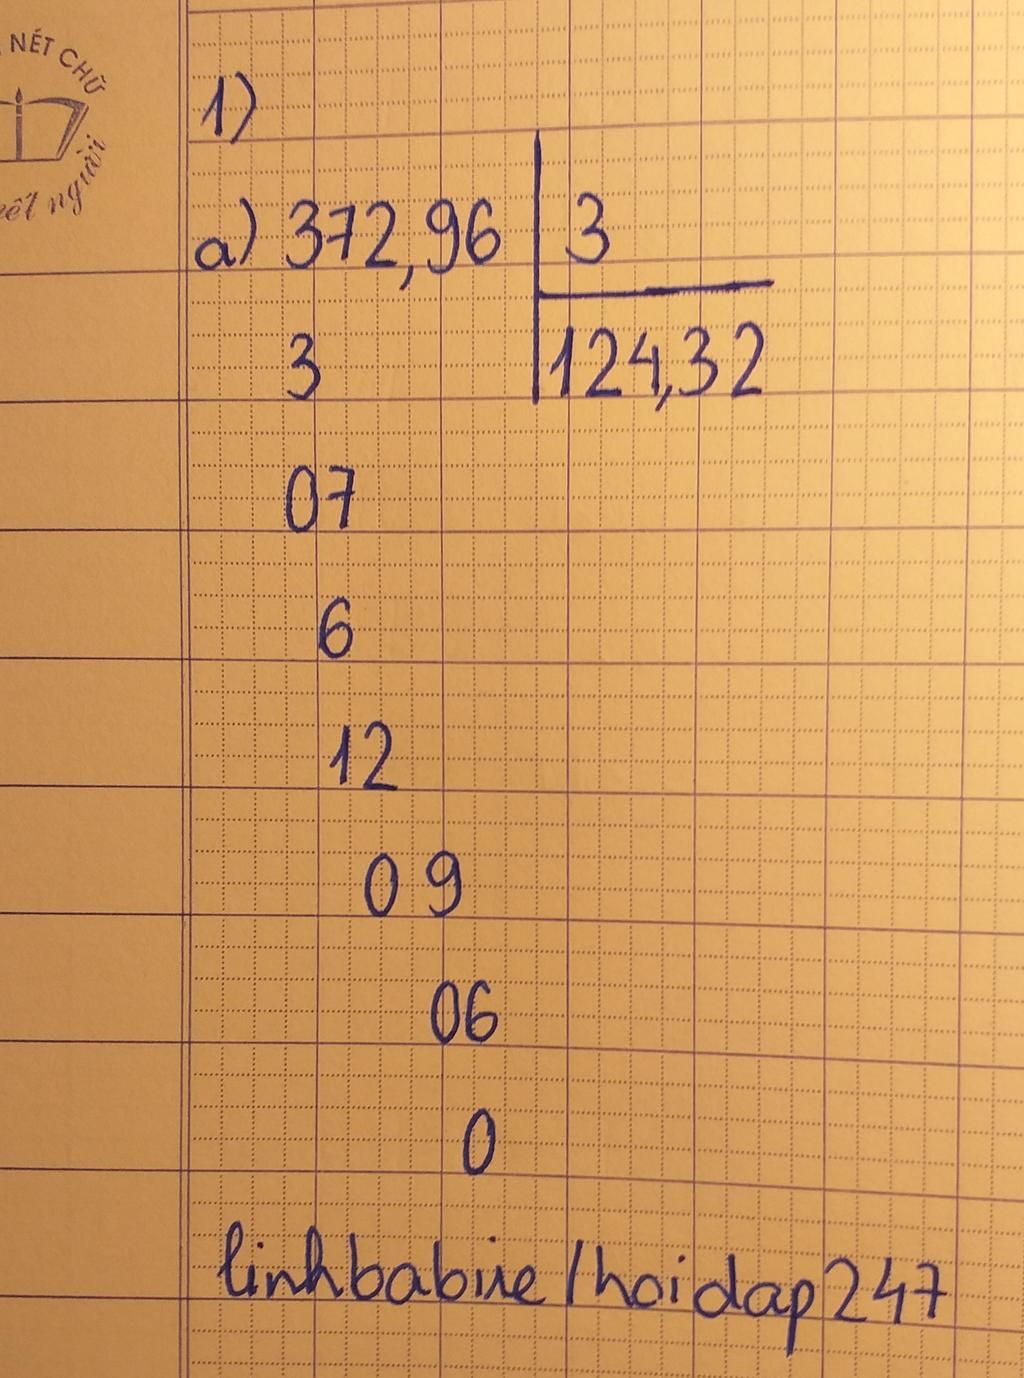 NÉT CHỮ
nết người
1)
a) 372,96 3
3 124,32
07
6
12
09
06
0
linhbabie/hoidap247